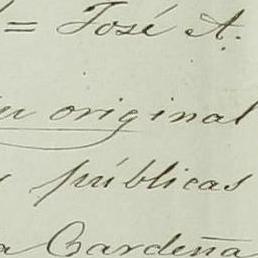 = José A.
su original
y públicas
a Cardeña